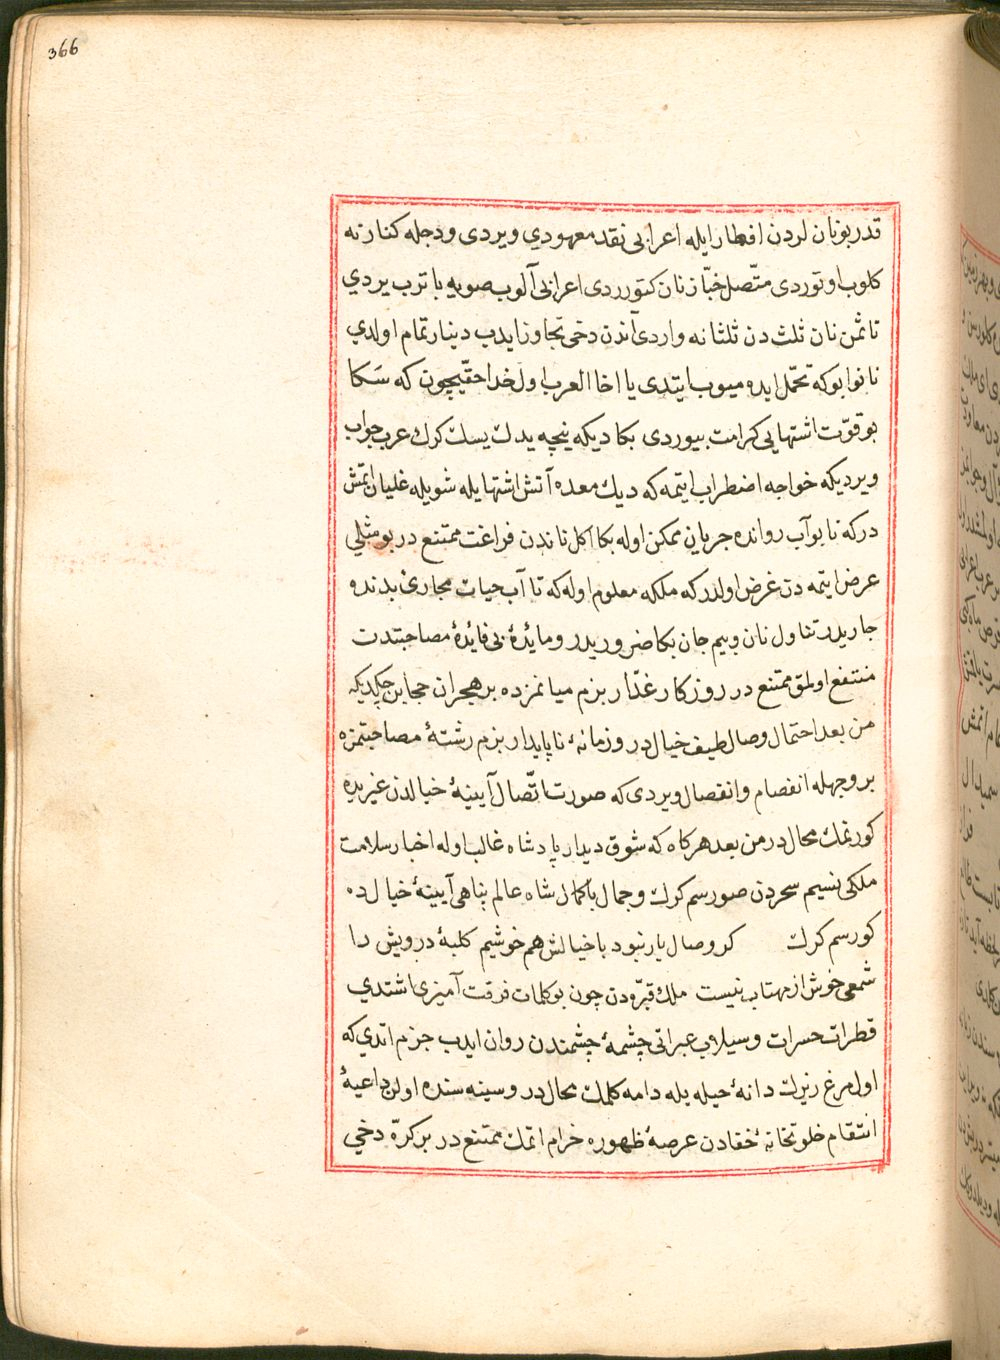 366
قدر بو نان لردن افطار ايله اعرابی نقد معهودي ويردی ودجله كنارنه
كلوب اوتوردی متّصل خبّاز نان كتورردی اعرابی آلوب صويه باترب يردي
تا ثمن نان ثلث دن ثلثانه واردی آندن دخی تجاوز ايدب دينار تمام اولدي
نانوا بوكه تحمّل ايده ميوب ايتدی يا اخا العرب اول خدا حقّيچون كه سَكا
بو قوّت اشتهايی كرامت بيوردی بكا ديكه نيچه يدك يسك كرك عرب جواب
ويرديكه خواجه اضطراب ايتمه كه ديك معده آتش اشتها يله شويله غليان اتمش
دركه تا بو آب روانده جريان ممكن اوله بكا اكل ناندن فراغت ممتنع در بو مثلی
عرض ايتمه دن غرض اولدركه ملكه معلوم اوله كه تا آب حيات مجاری بدنده
جاريدر تناول نان وبيم جان بكا ضروريدر ومائدۀ بی فائدۀ مصاحبتدت
منتفع اولمق ممتنع در روزكار غدّار بزم ميانمزده بر هجران حجابن چكديكه
من بعد احتمال وصال طيف خيال در وزمانۀ ناپايدار بزم رشتۀ مصاحبتمزه
بر وجهله انفصام وانفصال ويردی كه صورت اتّصال آيينۀ خيالدن غيريده
كورنمك محال در من بعد هركاه كه شوق ديدار پادشاه غالب اوله اخبار سلامت
ملكی نسيم سحردن صورسم كرك وجمال باكمال شاه عالم پناهی آيينۀ خيال ده
كورسم كرك كر وصال يار نبود باخيالش هم خوشيم كلبۀ درويش را
شمعی خوش از مهتاب نيست ملك قبّره دن چون بو كلمات فرقت آميزی اشتدي
قطرات حسرات وسيلاب عبراتی چشمۀ چشمندن روان ايدب جزم اتدي كه
اول مرغ زيرك دانۀ حيله يله دامه كلمك محال در وسينه سنده اولن داعيۀ
انتقام خلوتخانۀ خفادن عرصۀ ظهوره خرام اتمك ممتنع در بر كرّه دخی